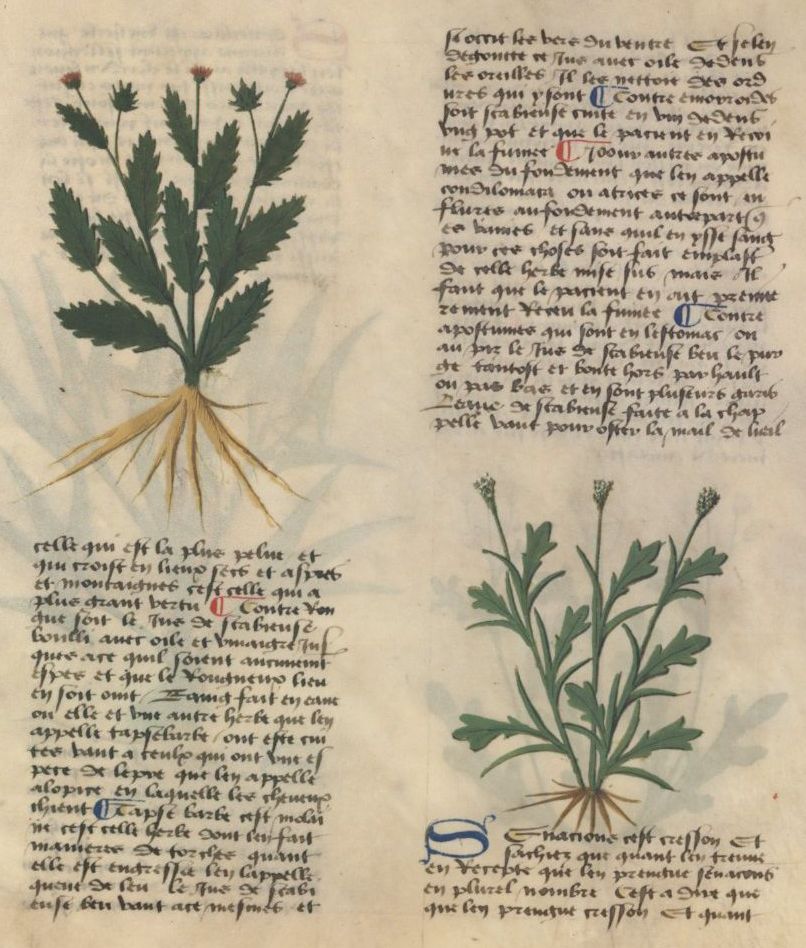 celle qui est la plus pelue et
qui croist en lieux secs et aspres
et montaignes cest celle qui a
plus grant vertu ¶ Contre ron
gne soit le Jus de scabieuse
boulli avec oile et vinaigre Jus
ques ace quil soient aucunement
espes et que le Rougneux lieu
en soit oint Baing fait en eaue
ou elle et une autre herbe que len
appelle tapsebarbe ont este cui
tes vaut a ceulx qui ont une es
pece de lepre que len appelle
alopice en laquelle les cheveux
chient ¶ Tapse barbe cest molei
ne cest celle herbe dont len fait
manieres de torches quant
elle est engressee len lappelle
queue de leu le Jus de scabi
euse beu vaut ace mesmes et
si occit les vers du ventre Et se len
degoutte ce Jus avec oile dedens
les oreilles Il les nettoie des ord
ures qui y sont ¶ Contre emoroides
soit scabieuse cuite en vin dedens
ung pot et que le pacient en Recoi
ve la fumee ¶ Pour autres apostu
mes du fondement que len appelle
condilomata ou atrices ce sont en
flures au fondement
es vaines et sans quil en ysse sang
pour ces choses soit fait emplast
de celle herbe mise sus mais Il
faut que le pacient en ait premie
rement Receu la fumee ¶ Contre
apostumes qui sont en lestomac ou
au piz le Jus de scabieuse beu le pur
ge tantost et boute hors par hault
ou par bas et en sont plusieurs garis
Leaue de scabieuse faite a la chap
pelle vaut pour oster la mail de lueil
Senacions cest cresson Et
sachiez que quant len treuve
en Recepte que len prengne senacions
en plurel nombre Cest a dire que
que len prengne cresson Et quant